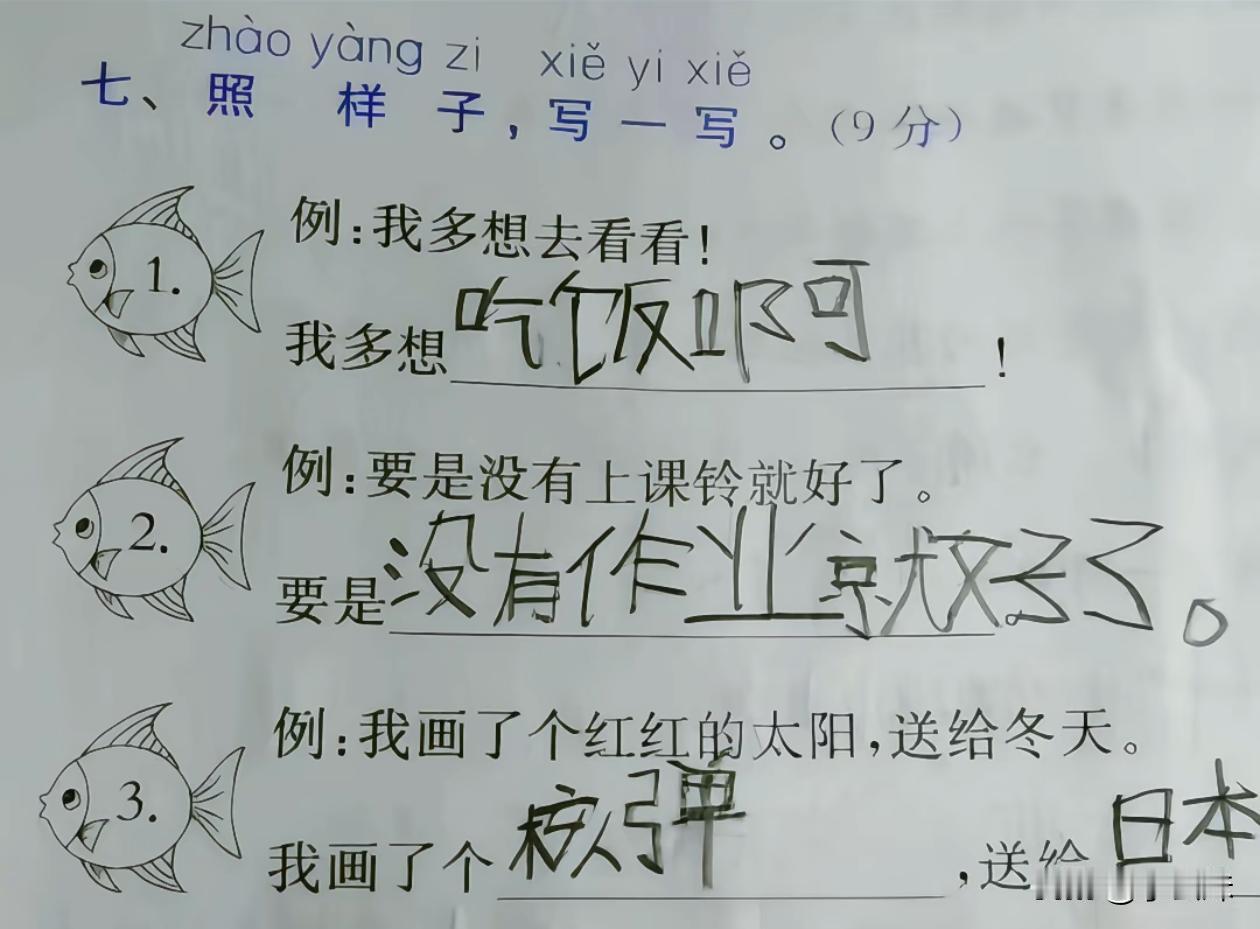 zhào yàng zi xiě yi xiě
七、照样子,写一写。(9分)
例:我多想去看看!
1.
我多想吃饭啊!
例:要是没有上课铃就好了。
2.
要是没有作业就好了。
例:我画了个红红的太阳,送给冬天。
3.
我画了个核弹,送给日本